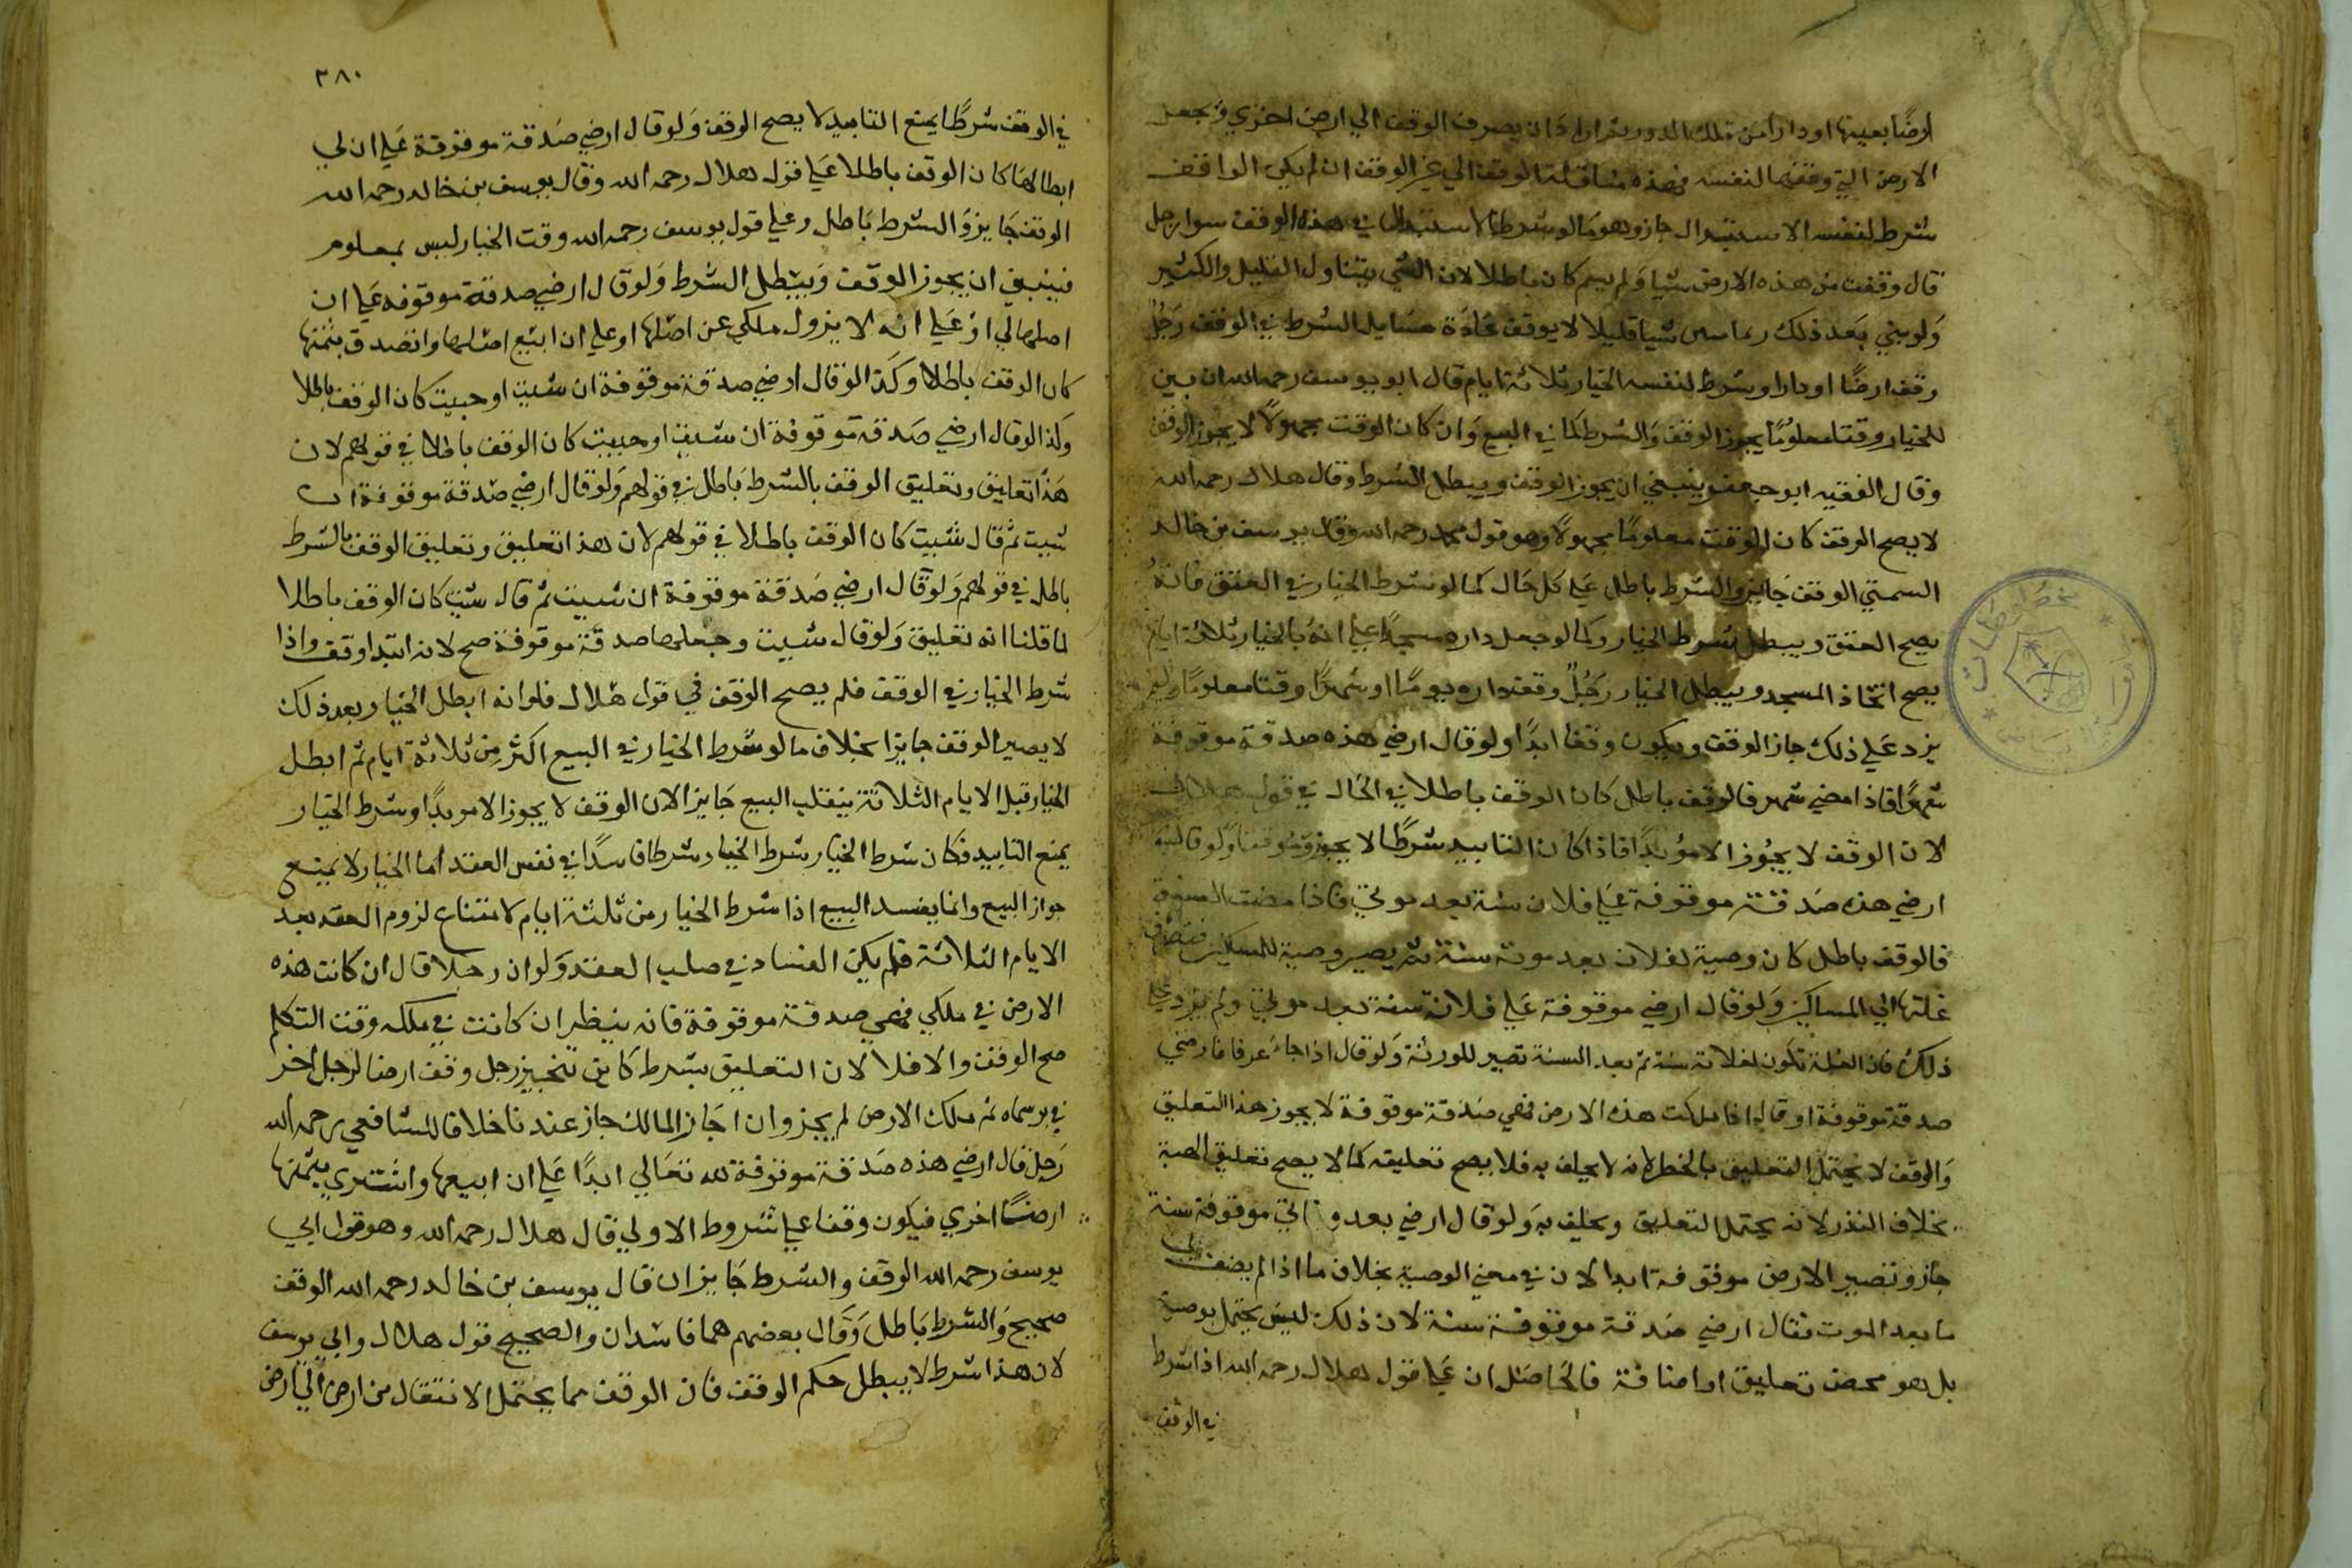 ارضا بعينها او دارا من تلك الدور ثم اراد ان يصرف الوقف الي ارض اخري ويجعل
الارض التي وقفها لنفسه فهذه مناقلة الوقف الي غير الوقف ان لم يكن الواقف
شرط لنفسه الاستبدال جاز وهو ما لو شرط الاستبدال في هذه الوقف سوا رجل
قال وقفت من هذه الارض شيا ولم يسم كان باطلا لان الشي يتناول القليل والكثير
ولو بين بعد ذلك ربما شيا قليلا لا يوقف عادة مسايل الشرط في الوقف رجل
وقف ارضا او دارا وشرط لنفسه الخيار ثلاثة ايام قال ابو يوسف رحمه الله ان بين
للخيار وقتا معلوما يجوز الوقف والشرط كما في البيع وان كان الوقت مجهولا لا يجوز الوقف
وقال الفقيه ابو جعفر ينبغي ان يجوز الوقف ويبطل الشرط وقال هلال رحمه الله
لا يصح الوقف كان الوقت معلوما مجهولا وهو قول محمد رحمه الله وقال يوسف بن خالد
السمتي الوقف جايز والشرط باطل علي كل حال كما لو شرط الخيار في العتق فانه
يصح العتق ويبطل شرط الخيار وكما لو جعل داره مسجدا علي انه بالخيار ثلاثة ايام
يصح اتخاذ المسجد ويبطل الخيار رجل وقف داره يوما او شهرا وقتا معلوما ولم
يزد علي ذلك جاز الوقف ويكون وقفا ابدا ولو قال ارضي هذه صدقة موقوفة
شهرا فاذا مضي شهر فالوقف باطل كان الوقف باطلا في الحال في قول هلال
لان الوقف لا يجوز الا موبدا فاذا كان التابيد شرطا لا يجوز موقتا ولو قال
ارضي هذه صدقة موقوفة علي فلان سنة بعد موتي فاذا مضت السنة
فالوقف باطل كان وصية لفلان بعد موته سنة ثم يصير وصية للمساكين فتصرف
غلتها الي المساكين ولو قال ارضي موقوفة علي فلانة سنة بعد موتي ولم يزد علي
ذلك فان الغلة تكون لفلانة سنة ثم بعد السنة تصير للورثة ولو قال اذا جاء غد فارضي
صدقة موقوفة او قال اذا ملكت هذه الارض فهي صدقة موقوفة لا يجوز هذا التعليق
والوقف لا يحتمل التعليق بالخطر لانه لا يحلف به فلا يصح تعليقه كما لا يصح تعليق الهبة
بخلاف النذر لانه يحتمل التعليق ويحلف به ولو قال ارضي بعد وفاتي موقوفة سنة
جاز وتصير الارض موقوفة ابدا لان في معني الوصية بخلاف ما اذا لم يضف الي
ما بعد الموت فقال ارضي صدقة موقوفة سنة لان ذلك ليس يحتمل بوصية
بل هو محض تعليق او اضافة فالحاصل ان علي قول هلال رحمه الله اذا شرط
في الوقف
مخطوطات
٣٨٠
في الوقف شرطا يمنع التابيد لا يصح الوقف ولو قال ارضي صدقة موقوفة علي ان لي
ابطالها كان الوقف باطلا علي قول هلال رحمه الله وقال يوسف بن خالد رحمه الله
الوقف جايز والشرط باطل وعلي قول يوسف رحمه الله وقت الخيار ليس بمعلوم
فينبغي ان يجوز الوقف ويبطل الشرط ولو قال ارضي صدقة موقوفه علي ان
اصلها لي او علي انه لا يزول ملكي عن اصلها او علي ان ابيع اصلها واتصدق بثمنها
كان الوقف باطلا وكذا لو قال ارضي صدقة موقوفة ان شيت او حبيت كان الوقف باطلا
وكذا لو قال ارضي صدقة موقوفة ان شيت او حبيت كان الوقف باطلا في قولهم لان
هذا تعليق وتعليق الوقف بالشرط باطل في قولهم ولو قال ارضي صدقة موقوفة ان
شيت ثم قال شيت كان الوقف باطلا في قولهم لان هذا تعليق وتعليق الوقف بالشرط
باطل في قولهم ولو قال ارضي صدقة موقوفة ان شيت ثم قال شيت كان الوقف باطلا
لما قلنا انه تعليق ولو قال شيت وجعلها صدقة موقوفة صح لانه ابتدا وقف واذا
شرط الخيار في الوقف فلم يصح الوقف في قول هلال فلو انه ابطل الخيار بعد ذلك
لا يصير الوقف جايزا بخلاف ما لو شرط الخيار في البيع اكثر من ثلاثة ايام ثم ابطل
الخيار قبل الايام الثلاثة ينقلب البيع جايزا لان الوقف لا يجوز الا موبدا وشرط الخيار
يمنع التابيد فكان شرط الخيار شرط الخيار شرطا فاسدا في نفس العقد اما الخيار لا يمنع
جواز البيع وانما يفسد البيع اذا شرط الخيار من ثلثة ايام لامتناع لزوم العقد بعد
الايام الثلاثة فلم يكن الفساد في صلب العقد ولو ان رجلا قال ان كانت هذه
الارض في ملكي فهي صدقة موقوفة فانه ينظر ان كانت في ملكه وقت التكلم
صح الوقف والا فلا لان التعليق بشرط كاين تنجيز رجل وقف ارضا لرجل اخر
في بر سماه ثم ملك الارض لم يجز وان اجاز المالك جاز عندنا خلافا للشافعي رحمه الله
رجل قال ارضي هذه صدقة موقوفة لله تعالي ابدا علي ان ابيعها واشتري بثمنها
ارضا اخري فيكون وقفا علي شروط الاولي قال هلال رحمه الله وهو قول ابي
يوسف رحمه الله الوقف والشرط جايزان قال يوسف بن خالد رحمه الله الوقف
صحيح والشرط باطل وقال بعضهم هما فاسدان والصحيح قول هلال وابي يوسف
لان هذا شرط لا يبطل حكم الوقف فان الوقف مما يحتمل الانتقال من ارض الي ارض